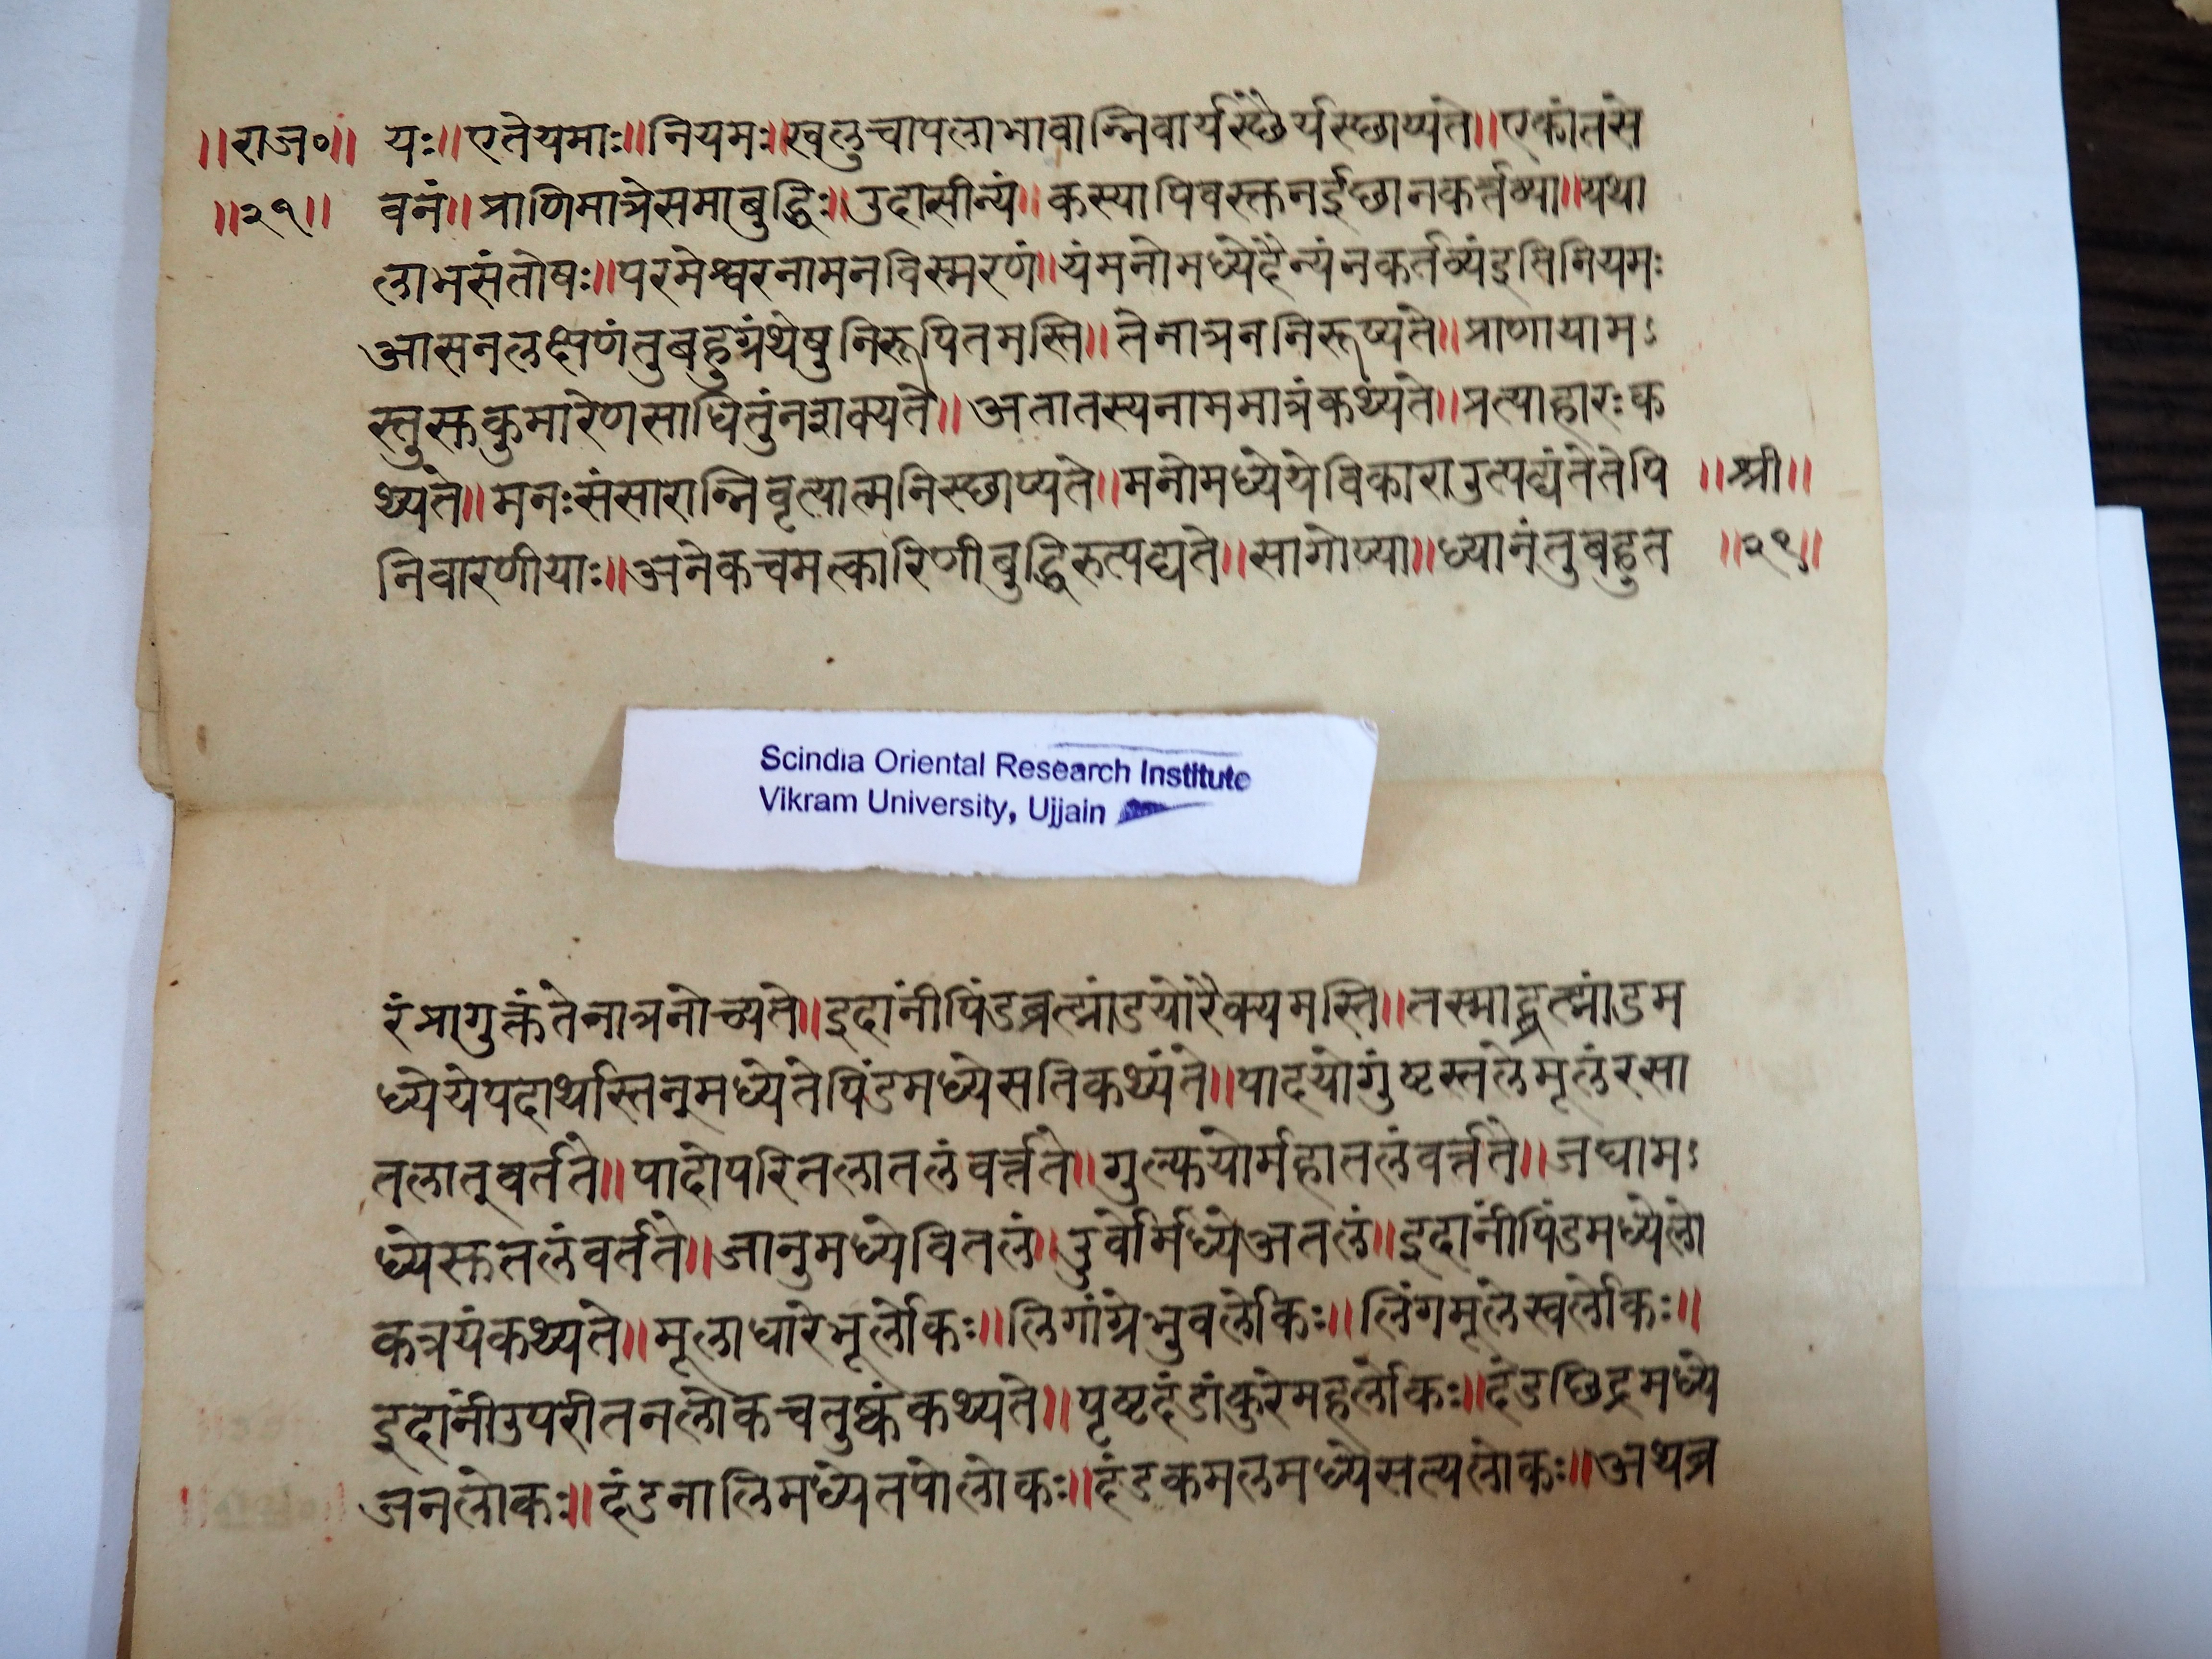 ॥राज०॥ यः॥एतेयमाः॥नियमः॥खलुचापलाभावान्निवार्यस्छैर्यस्छाप्यंते॥एकांतसे
॥२१॥ वनं॥प्राणिमात्रेसमाबुद्धिः॥उदासीन्यं॥कस्यापिवस्क्तनईछानकर्त्तव्या॥यथा
लाभसंतोषः॥परमेश्वरनामनविस्मरणं॥यंमनोमध्येदैन्यंनकर्तव्यंइतिनियमः
आसनलक्षणंतुबहुग्रंथेषुनिरूपितमस्ति॥तेनात्रननिरूप्यंते॥प्राणायामऽ
स्तुस्क्तकुमारेणसाधितुंनशक्यते॥अतातस्यनाममात्रंकथ्यंते॥प्रत्याहारःक
थ्यते॥मनःसंसारान्निवृत्यात्मनिस्छाप्यते॥मनोमध्येयेविकाराउत्पद्यंतेतेपि ॥श्री॥
निवारणीयाः॥अनेकचमत्कारिणीबुद्धिरुत्पद्यते॥सागोप्या॥ध्यानंतुबहुत ॥२१॥
Scindia Oriental Research Institute
Vikram University, Ujjain
रंप्रागुक्तंतेनात्रनोच्यते॥इदांनीपिंडब्रह्मांडयोरैक्यमस्ति॥तस्माद्ब्रह्मांडम
ध्येयेपदार्थास्तिनुमध्येतेपिंडमध्येसतिकथ्यंते॥पादयोगुंष्टस्तलेमूलंरसा
तलातुवर्तते॥पादोपरितलातलंवर्त्तते॥गुल्फयोर्महातलंवर्त्तते॥जघामऽ
ध्येस्क्ततलंवर्तते॥जानुमध्येवितलं॥उर्वोर्मध्येअतलं॥इदांनीपिंडमध्येलो
कत्रयंकथ्यते॥मूलाधारेभूर्लोकः॥लिगांग्रेभुवर्लोकः॥लिंगमूलेस्वर्लोकः॥
इदांनीउपरीतनलोकचतुष्कंकथ्यते॥पृष्टदंडांकुरेमहर्लोकः॥दंडछिद्रमध्ये
जनलोकः॥दंडनालिमध्येतपोलोकः॥दंडकमलमध्येसत्यलोकः॥अथब्र